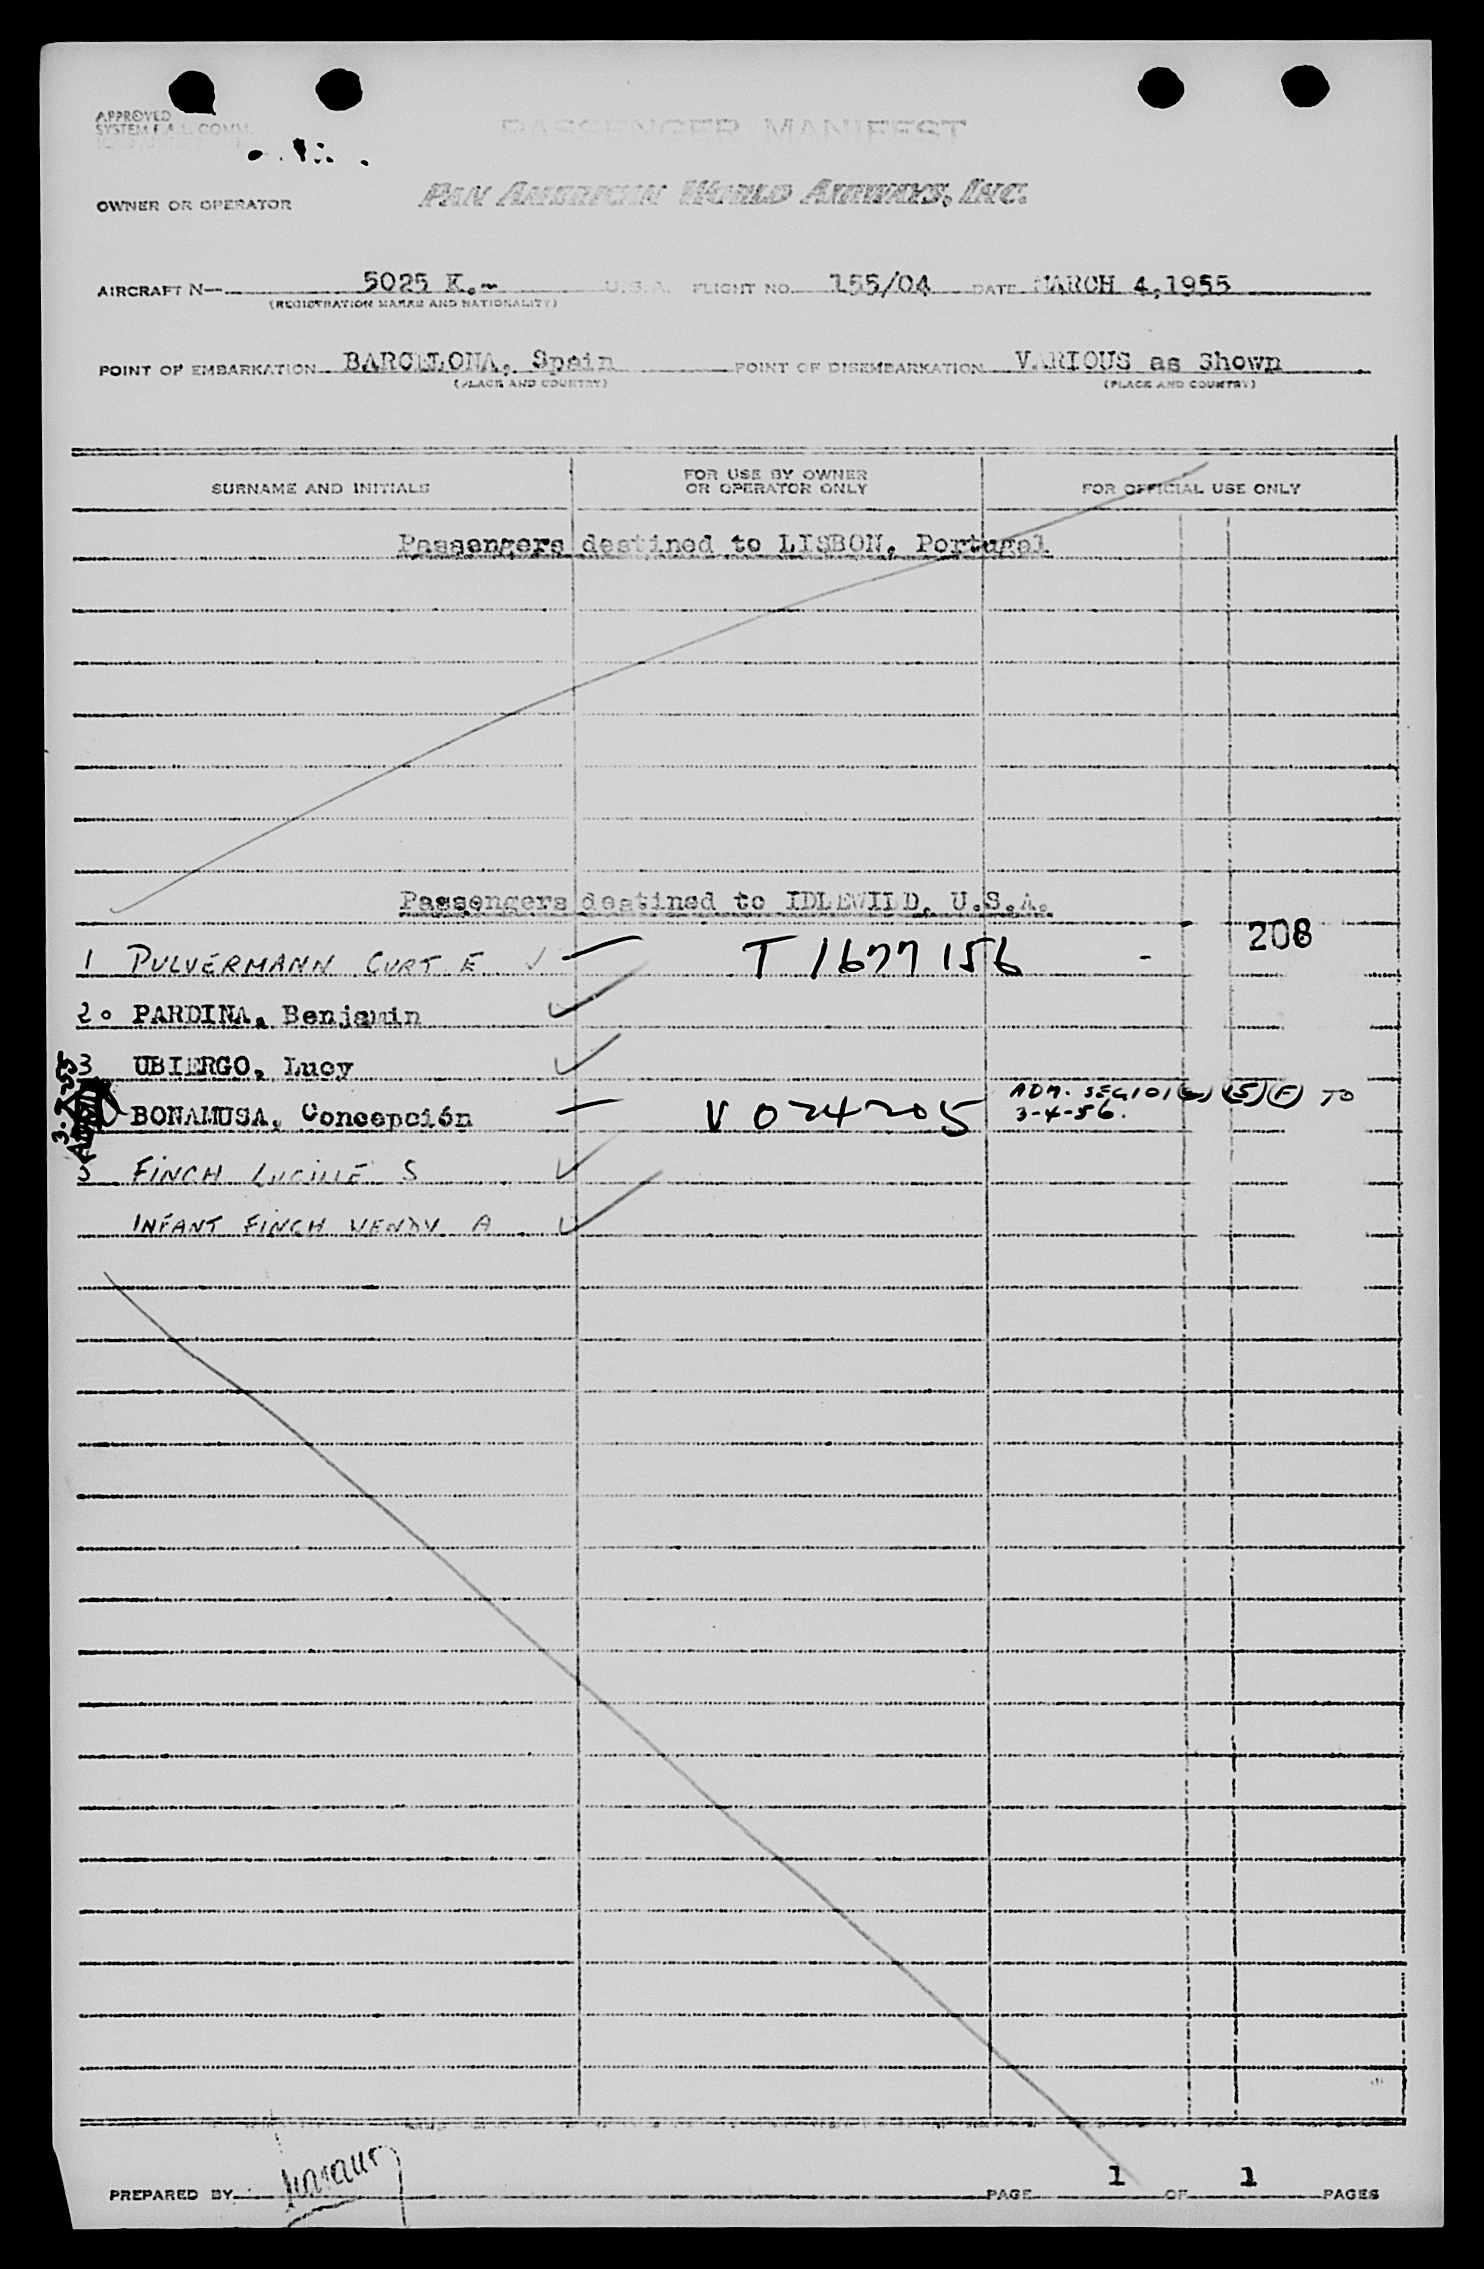 APPROVED
SYSTEM F.A.L. COMM.
PASSENGER MANIFEST
OWNER OR OPERATOR PAN AMERICAN WORLD AIRWAYS, INC.
AIRCRAFT N— 5025 K.- U.S.A. FLIGHT NO. 155/04 DATE MARCH 4,1955
(REGISTRATION MARKS AND NATIONALITY)
POINT OF EMBARKATION BARCELONA, Spain POINT OF DISEMBARKATION VARIOUS as Shown
(PLACE AND COUNTRY) (PLACE AND COUNTRY)
SURNAME AND INITIALS FOR USE BY OWNER OR OPERATOR ONLY FOR OFFICIAL USE ONLY
Passengers destined to LISBON, Portugal
Passengers destined to IDLEWILD, U.S.A.
208
1 PULVERMANN CURT E ✓ — T 1677156 -
2 PARDINA, Benjamin ✓
3 UBIERGO, Lucy ✓
3-7-55
BONAMUSA, Concepción — V 024205 ADM. SEC 101 (15) (F) TO
3-4-56.
5 FINCH LUCILLE S ✓
INFANT FINCH WENDY A ✓
PREPARED BY PAGE 1 OF 1 PAGES